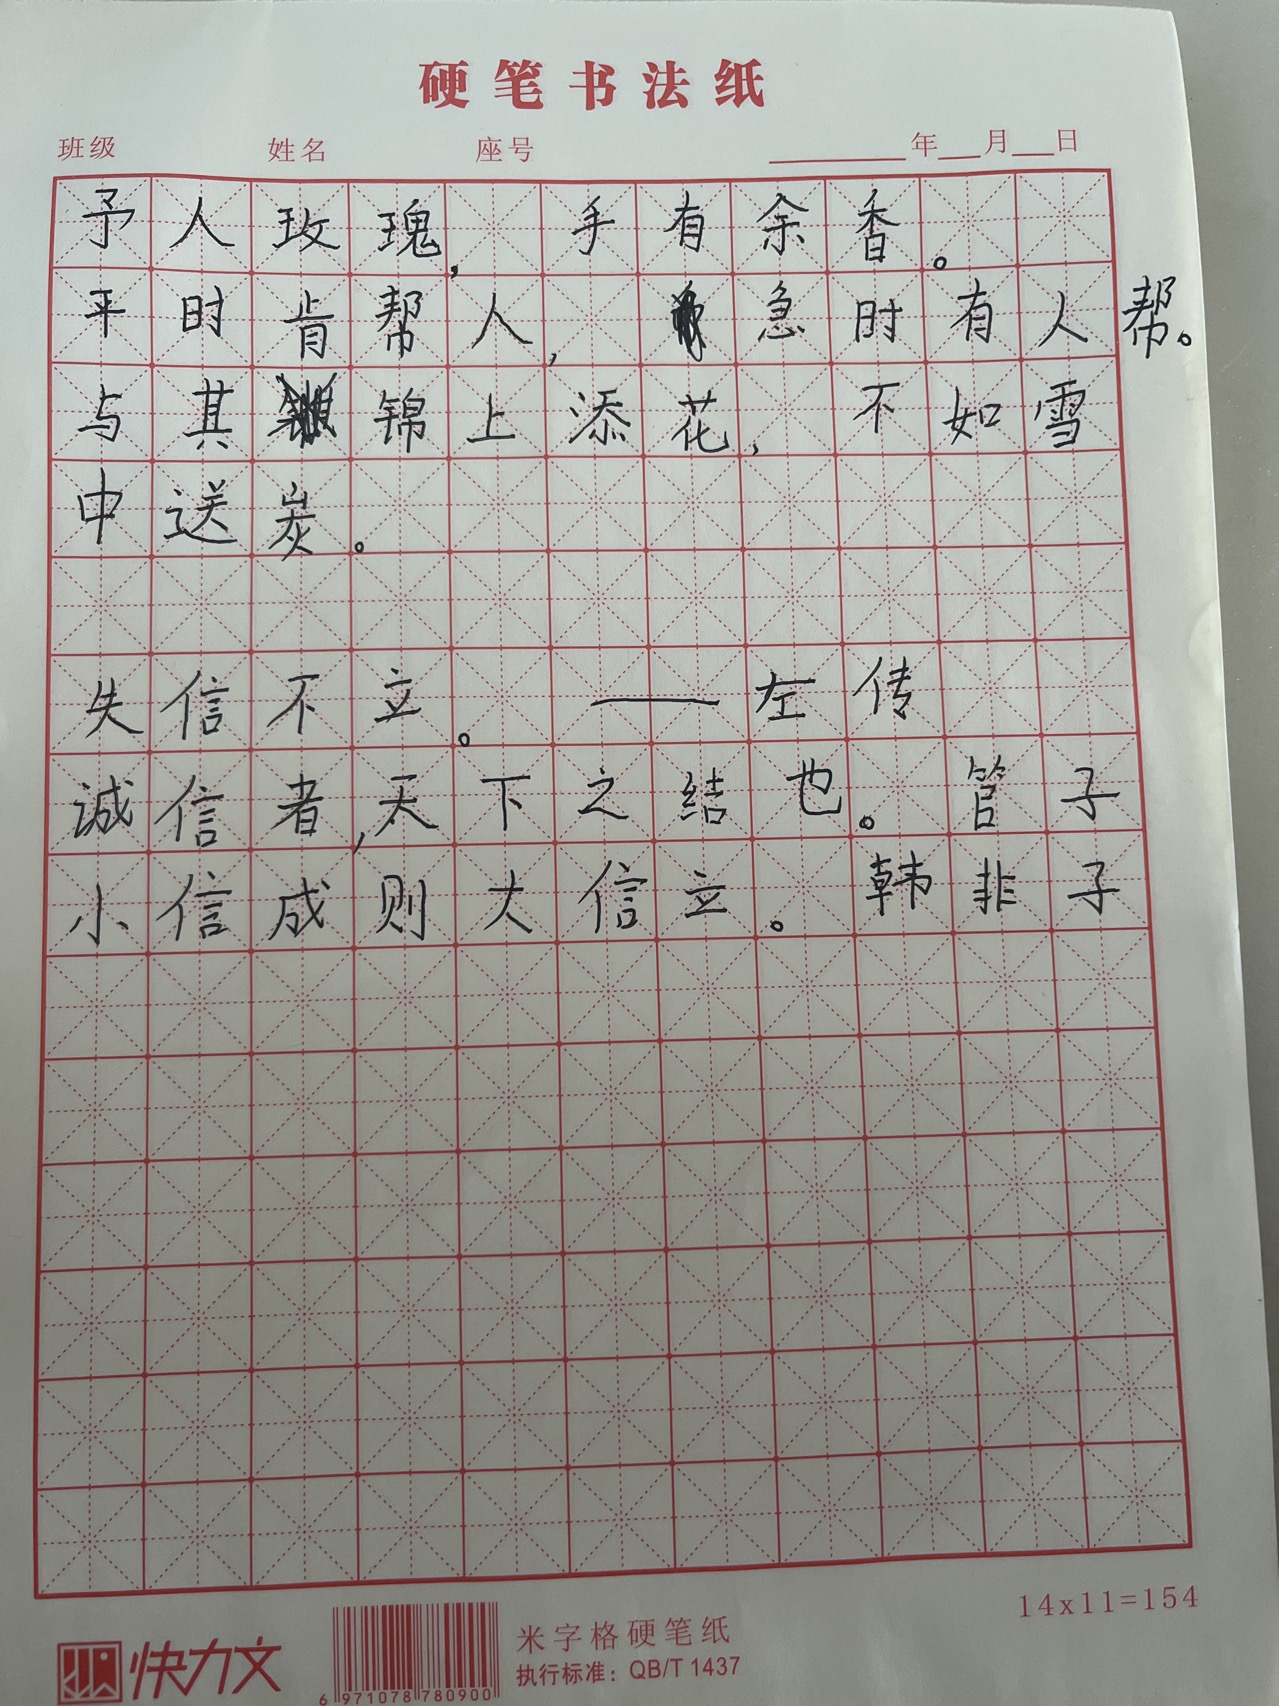 硬笔书法纸
班级 姓名 座号 年 月 日
予人玫瑰，手有余香。
平时肯帮人，急时有人帮。
与其锦上添花，不如雪
中送炭。
失信不立。——左传
诚信者，天下之结也。管子
小信成则大信立。韩非子
14x11=154
快力文
米字格硬笔纸
执行标准：QB/T 1437
6 971078 780900